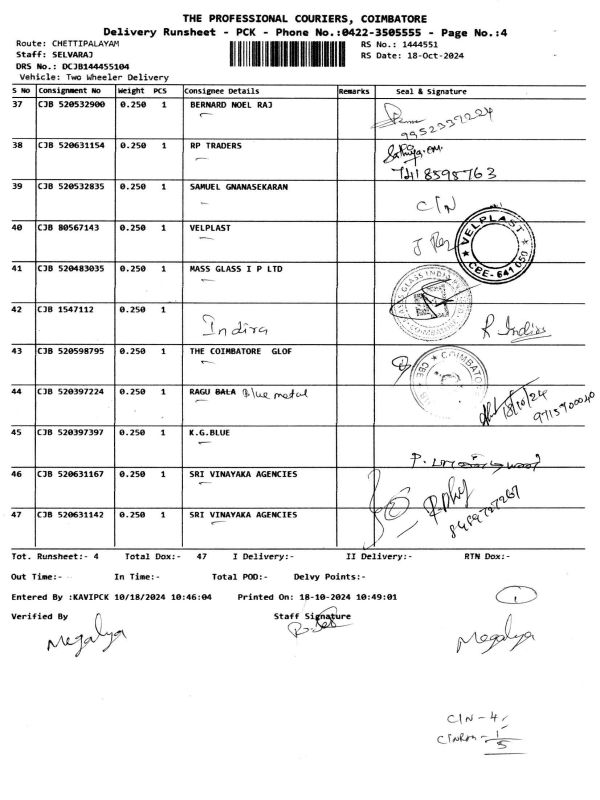 THE PROFESSIONAL COURIERS, COIMBATORE
Delivery Runsheet - PCK - Phone No.:0422-3505555 - Page No.:4
Route: CHETTIPALAYAM RS No.: 1444551
Staff: SELVARAJ RS Date: 18-Oct-2024
DRS No.: DCJB144455104
Vehicle: Two Wheeler Delivery
S No Consignment No Weight PCS Consignee Details Remarks Seal & Signature
37 CJB 520532900 0.250 1 BERNARD NOEL RAJ
9952337224
38 CJB 520631154 0.250 1 RP TRADERS
7418598763
39 CJB 520532835 0.250 1 SAMUEL GNANASEKARAN
C/N
40 CJB 80567143 0.250 1 VELPLAST
VELPLAST CBE-641 050
41 CJB 520483035 0.250 1 MASS GLASS I P LTD
42 CJB 1547112 0.250 1
Indira R Indira
43 CJB 520598795 0.250 1 THE COIMBATORE GLOF
COIMBATORE
44 CJB 520397224 0.250 1 RAGU BALA Blue metal
18/10/24
9715700040
45 CJB 520397397 0.250 1 K.G.BLUE
46 CJB 520631167 0.250 1 SRI VINAYAKA AGENCIES
47 CJB 520631142 0.250 1 SRI VINAYAKA AGENCIES
Tot. Runsheet:- 4 Total Dox:- 47 I Delivery:- II Delivery:- RTN Dox:-
Out Time:- In Time:- Total POD:- Delvy Points:-
Entered By :KAVIPCK 10/18/2024 10:46:04 Printed On: 18-10-2024 10:49:01
1
Verified By Staff Signature
Megalya Megalya
C/N - 4
1
5